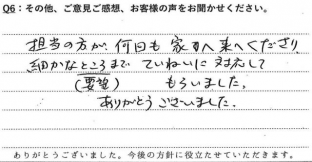 Q6：その他、ご意見ご感想、お客様の声をお聞かせください。
担当の方が、何日も家まへ来てくださり
細かなところまで ていねいに 対応して
(要望) もらいました。
ありがとうございました。
ありがとうございました。今後の方針に役立たせていただきます。